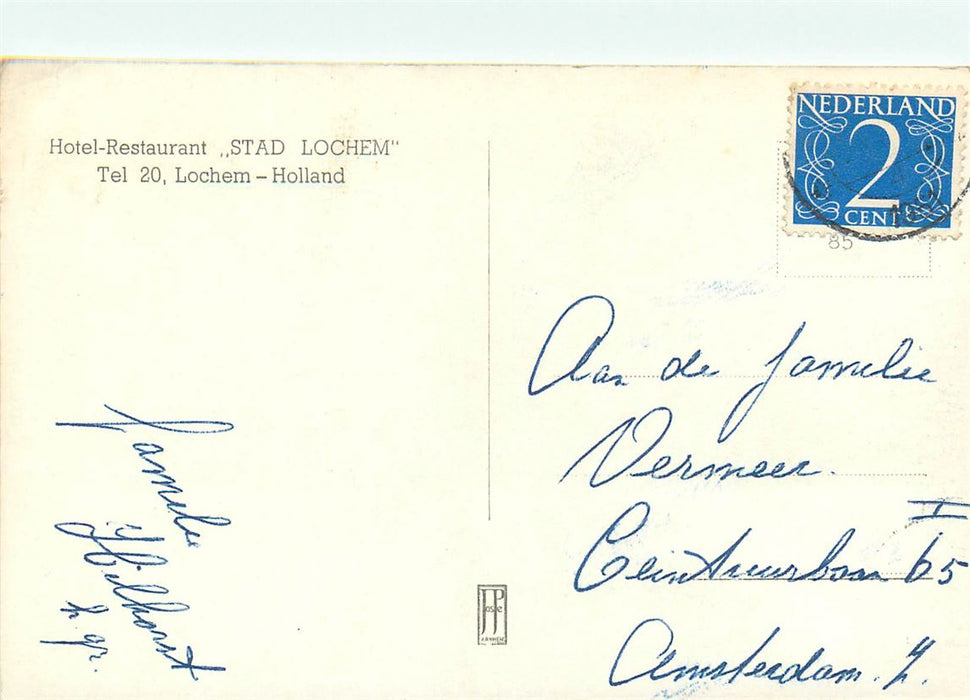 Hotel-Restaurant „STAD LOCHEM"
Tel 20, Lochem – Holland
NEDERLAND
2
CENT
85
Aan de familie
Vermeer.
Ceintuurbaan 65 II
Amsterdam. Z.
familie
Hilhorst
h. gr.
JP